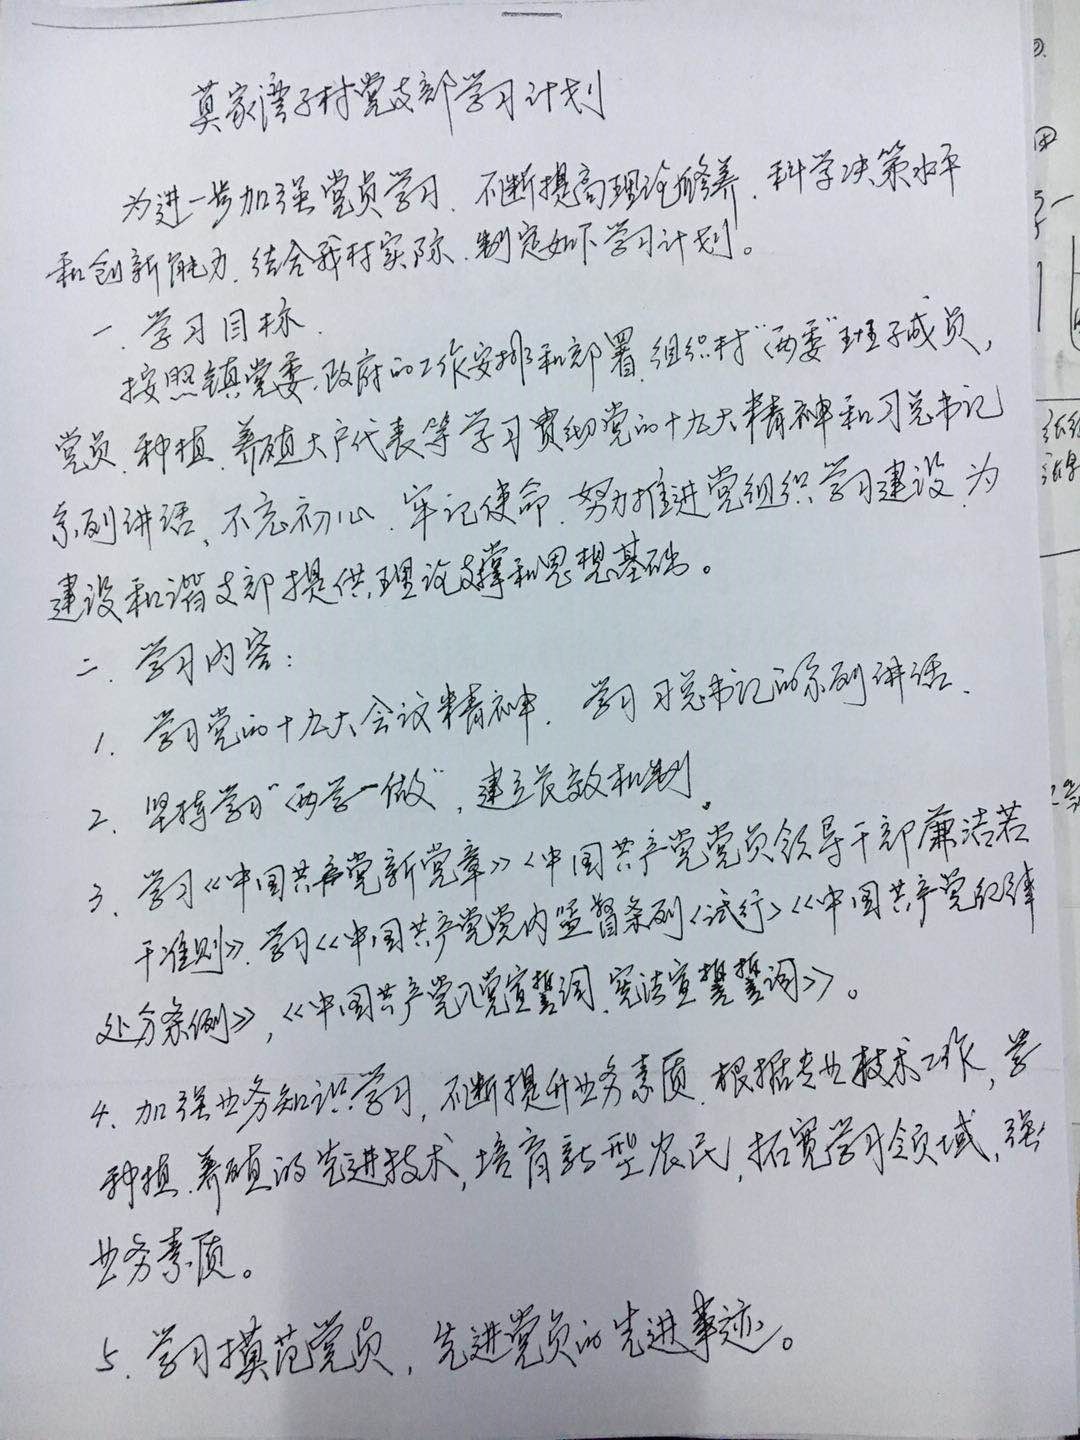 莫家湾子村党支部学习计划
为进一步加强党员学习、不断提高理论修养、科学决策水平
和创新能力、结合我村实际、制定如下学习计划。
一、学习目标、
按照镇党委、政府的工作安排和部署、组织村“两委”班子成员，
党员、种植、养殖大户代表等学习贯彻党的十九大精神和习总书记
系列讲话、不忘初心、牢记使命、努力推进党组织学习建设、为
建设和谐支部提供理论支撑和思想基础。
二、学习内容：
1、学习党的十九大会议精神、学习习总书记的系列讲话、
2、坚持学习“两学一做”，建立长效机制。
3、学习《中国共产党新党章》《中国共产党党员领导干部廉洁若
干准则》、学习《中国共产党党内监督条例〈试行〉《中国共产党纪律
处分条例》，《中国共产党入党宣誓词、宪法宣誓誓词》。
4、加强业务知识学习，不断提升业务素质、根据专业技术工作，学
种植、养殖的先进技术，培育新型农民，拓宽学习领域，强
业务素质。
5、学习模范党员，先进党员的先进事迹。